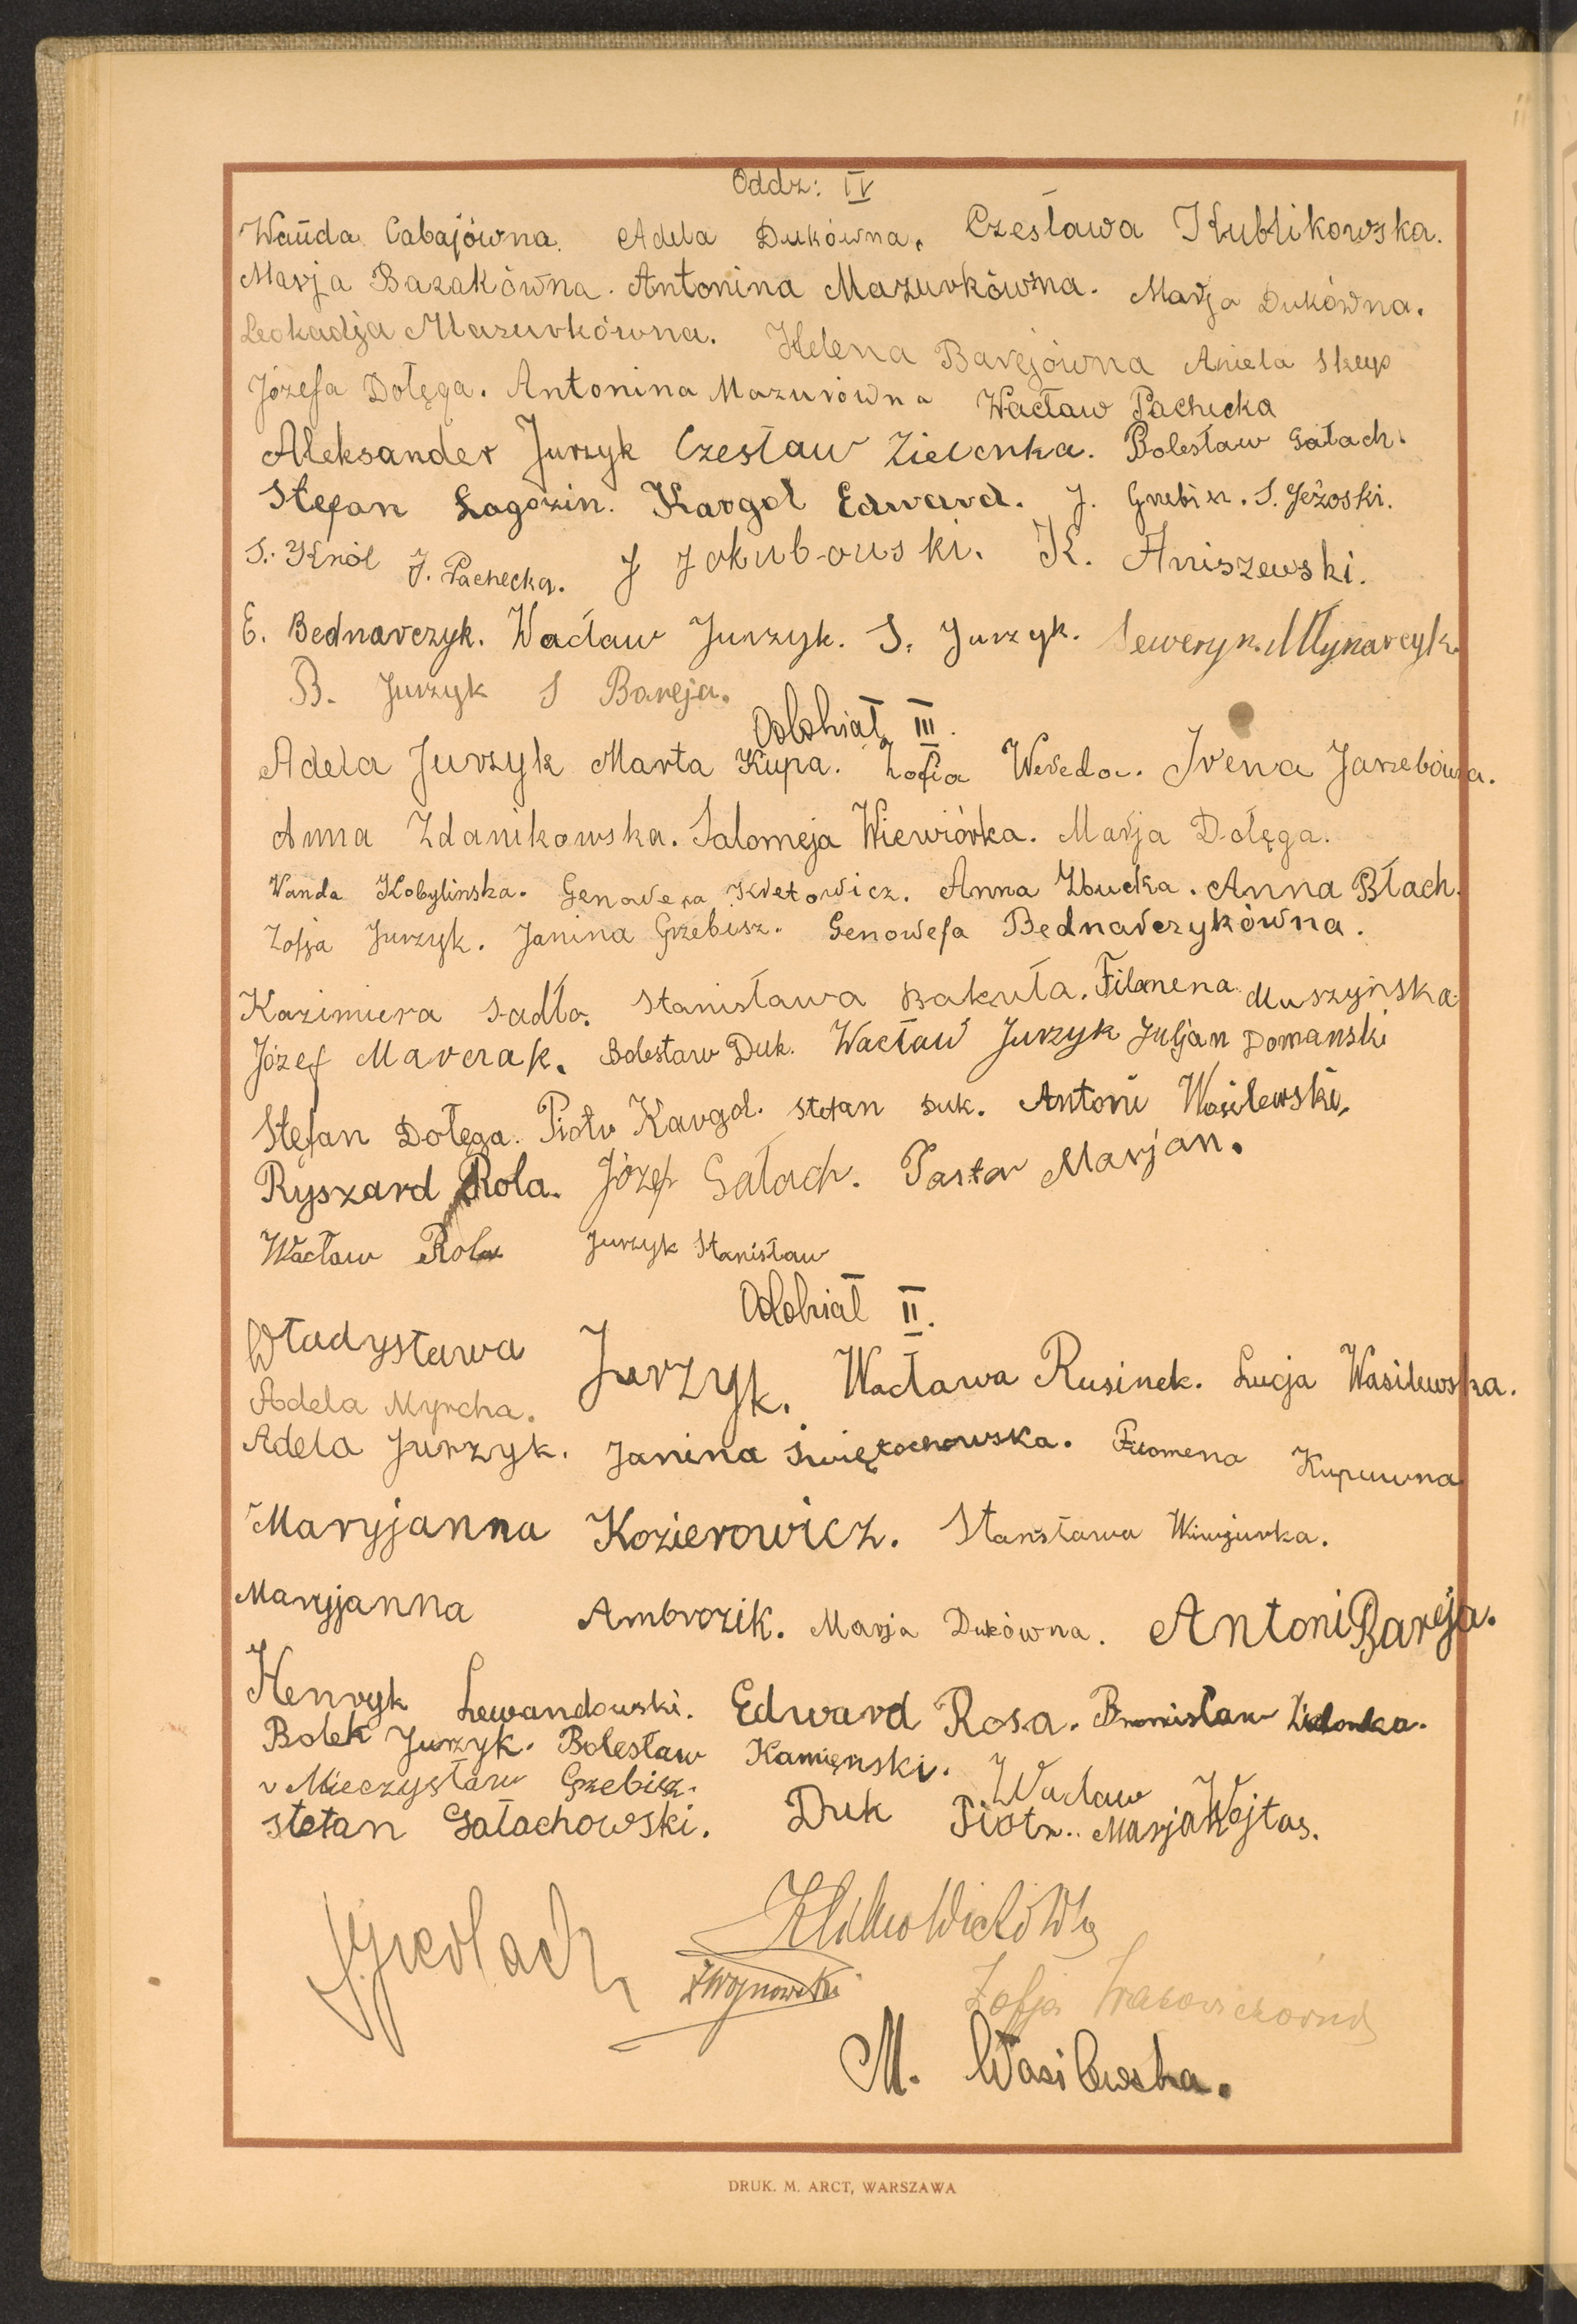 Oddz: IV
Wanda Cabajówna. Adela Dukówna. Czesława Kublikowska.
Marja Bazakówna. Antonina Mazurkówna. Marja Dukówna.
Leokadja Mazurkówna. Helena Barejówna Aniela Skup
Józefa Dołęga. Antonina Mazurówna Wacław Pachucka
Aleksander Jurzyk Czesław Zielonka. Bolesław Gałach.
Stefan Łagozin. Kargol Edward. J. Grzebisz. S. Jeżoski.
S. Król J. Pachecka. J Jokubouski. K. Aniszewski.
E. Bednarczyk. Wacław Jurzyk. S. Jurzyk. Seweryn Młynarcyk.
B. Jurzyk S Bareja.
Oddział III.
Adela Jurzyk Marta Kupa. Zofia Wereda. Irena Jarzebówna.
Anna Zdanikowska. Salomeja Wiewiórka. Marja Dołęga.
Wanda Kobylinska. Genowefa Kretowicz. Anna Zbucka. Anna Błach.
Zofja Jurzyk. Janina Grzebisz. Genowefa Bednarczykówna.
Kazimiera Sadło. Stanisława Bakuła. Filomena Muszyńska
Józef Maverak. Bolesław Duk. Wacław Jurzyk Juljan Domanski
Stefan Dołęga. Piotr Kargol. Stefan Duk. Antoni Wasilewski,
Ryszard Rola. Józef Gałach. Pastor Marjan.
Wacław Rola Jurzyk Stanisław
Oddział II.
Władysława Jurzyk. Wacława Rusinek. Łucja Wasilewska.
Adela Myrcha.
Adela Jurzyk. Janina Świętochowska. Filomena Kupuwna
Maryjanna Kozierowicz. Stanisława Wiwjurka.
Maryjanna Ambrozik. Marja Dukówna. Antoni Bareja.
Henryk Lewandowski. Edward Rosa. Bronisław Zielonka.
Bolek Jurzyk. Bolesław Kamięnski. Wacław
Mieczysław Grzebisz.
Stefan Gałachowski. Duk Piotr. Marja Wojtas.
ZWojnowski
Zofja
M. Wasilewska.
DRUK. M. ARCT, WARSZAWA